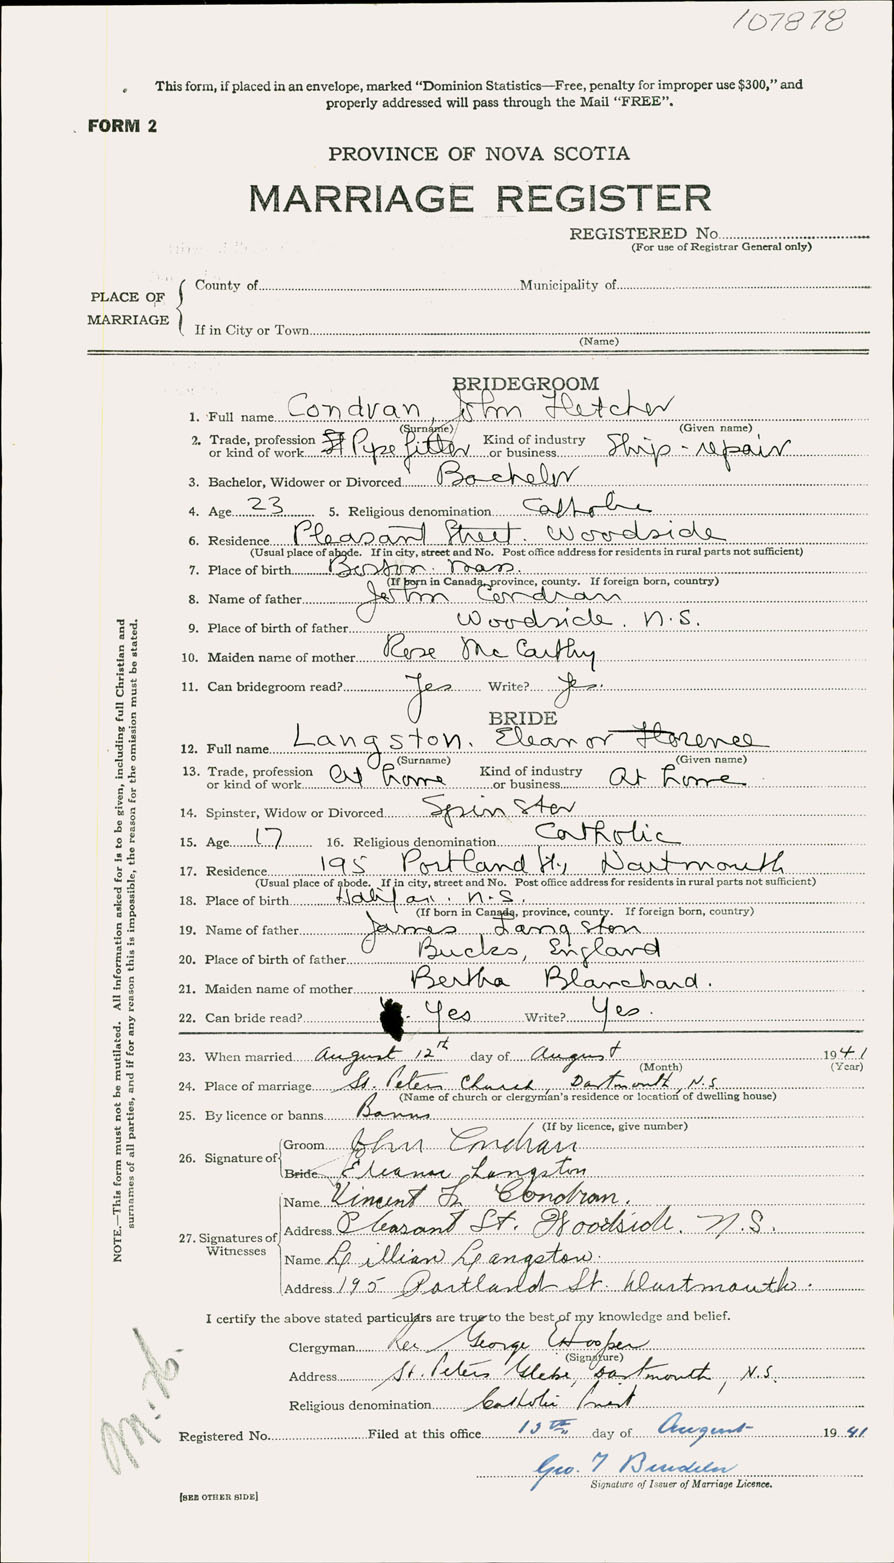 107878
This form, if placed in an envelope, marked "Dominion Statistics—Free, penalty for improper use $300," and
properly addressed will pass through the Mail "FREE".
FORM 2
PROVINCE OF NOVA SCOTIA
MARRIAGE REGISTER
REGISTERED No.
(For use of Registrar General only)
PLACE OF MARRIAGE
County of Municipality of
If in City or Town
(Name)
BRIDEGROOM
1. Full name Condran, John Fletcher
(Surname) (Given name)
2. Trade, profession or kind of work Pipe fitter Kind of industry or business Ship-repair
3. Bachelor, Widower or Divorced Bachelor
4. Age 23 5. Religious denomination Catholic
6. Residence Pleasant Street. Woodside
(Usual place of abode. If in city, street and No. Post office address for residents in rural parts not sufficient)
7. Place of birth Boston. Mass.
(If born in Canada, province, county. If foreign born, country)
8. Name of father John Condran
9. Place of birth of father Woodside. N.S.
10. Maiden name of mother Rose McCarthy
11. Can bridegroom read? Yes Write? Yes.
BRIDE
12. Full name Langston. Eleanor Florence
(Surname) (Given name)
13. Trade, profession or kind of work At home Kind of industry or business At home
14. Spinster, Widow or Divorced Spinster
15. Age 17 16. Religious denomination Catholic
17. Residence 195 Portland St., Dartmouth
(Usual place of abode. If in city, street and No. Post office address for residents in rural parts not sufficient)
18. Place of birth Halifax. N.S.
(If born in Canada, province, county. If foreign born, country)
19. Name of father James Langston
20. Place of birth of father Bucks, England
21. Maiden name of mother Bertha Blanchard.
22. Can bride read? Yes Write? Yes.
23. When married August 12th day of August 1941
(Month) (Year)
24. Place of marriage St. Peters Church, Dartmouth, N.S.
(Name of church or clergyman's residence or location of dwelling house)
25. By licence or banns Banns
(If by licence, give number)
26. Signature of
Groom John Condran
Bride Eleanor Langston
27. Signatures of Witnesses
Name Vincent Condran.
Address Pleasant St. Woodside. N.S.
Name Lillian Langston.
Address 195 Portland St. Dartmouth.
I certify the above stated particulars are true to the best of my knowledge and belief.
Clergyman Rev George Hooper
(Signature)
Address St. Peters Glebe, Dartmouth, N.S.
Religious denomination Catholic Priest
Registered No. Filed at this office 13th day of August 1941
Geo. T
Signature of Issuer of Marriage Licence.
[SEE OTHER SIDE]
NOTE.—This form must not be mutilated. All information asked for is to be given, including full Christian and
surnames of all parties, and if for any reason this is impossible, the reason for the omission must be stated.